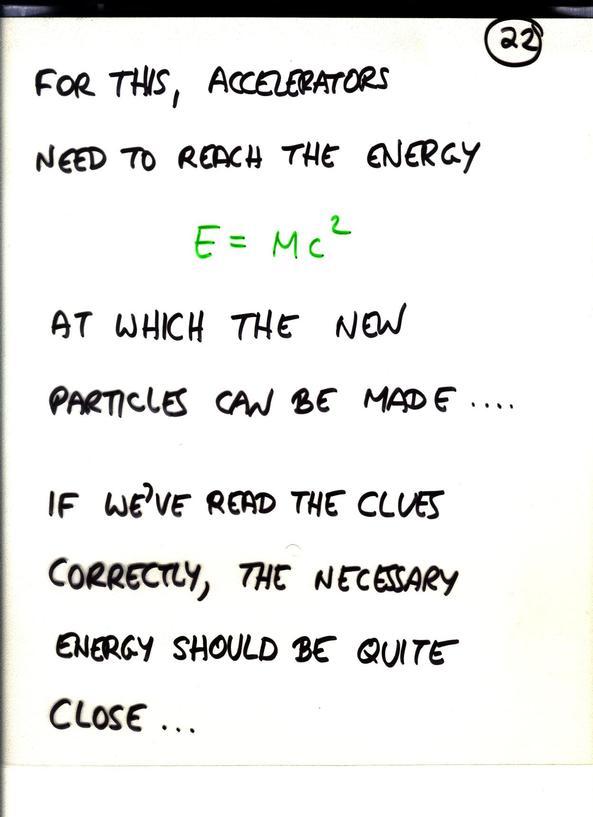 22
FOR THIS, ACCELERATORS
NEED TO REACH THE ENERGY
E = Mc²
AT WHICH THE NEW
PARTICLES CAN BE MADE ....
IF WE'VE READ THE CLUES
CORRECTLY, THE NECESSARY
ENERGY SHOULD BE QUITE
CLOSE ...